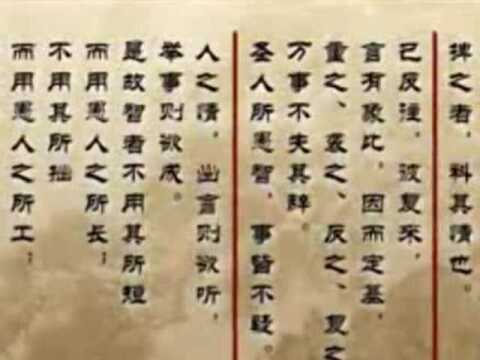 捭之者，料其情也。
己反往，彼复来，
言有象比，因而定基，
重之、袭之、反之、复之
万事不失其辞。
圣人所愚智，事皆不疑。
人之情，出言则欲听，
举事则欲成。
是故智者不用其所短
而用愚人之所长；
不用其所拙
而用愚人之所工；